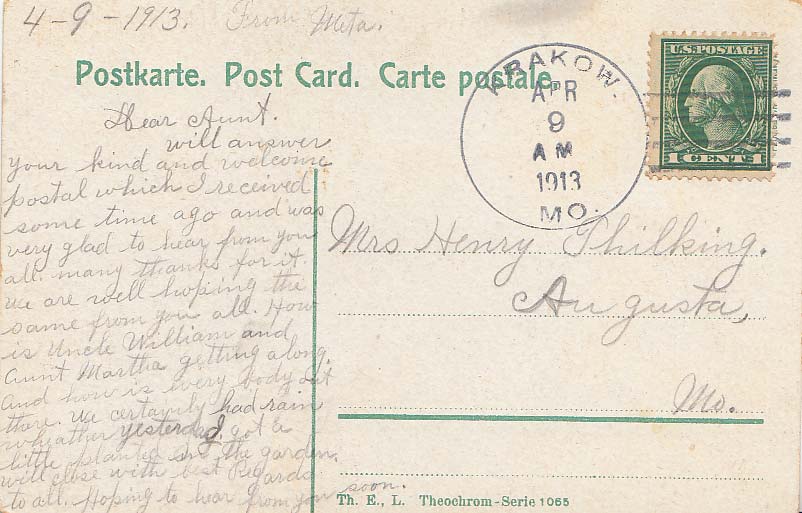 4-9-1913. From Meta.
Postkarte. Post Card. Carte postale.
KRAKOW.
APR
9
AM
1913
MO.
U.S. POSTAGE
1 CENT 1
Dear Aunt.
will answer
your kind and welcome
postal which I received
some time ago and was
very glad to hear from you
all. many thanks for it.
we are well hoping the
same from you all. How
is Uncle William and
Aunt Martha getting along.
And how is every body out
there. We certainly had rain
wheather yesterday. got a
little planted in the garden.
will close with best Regards
to all. Hoping to hear from you soon.
Mrs Henry Philking.
Augusta,
Mo.
Th. E., L. Theochrom-Serie 1065